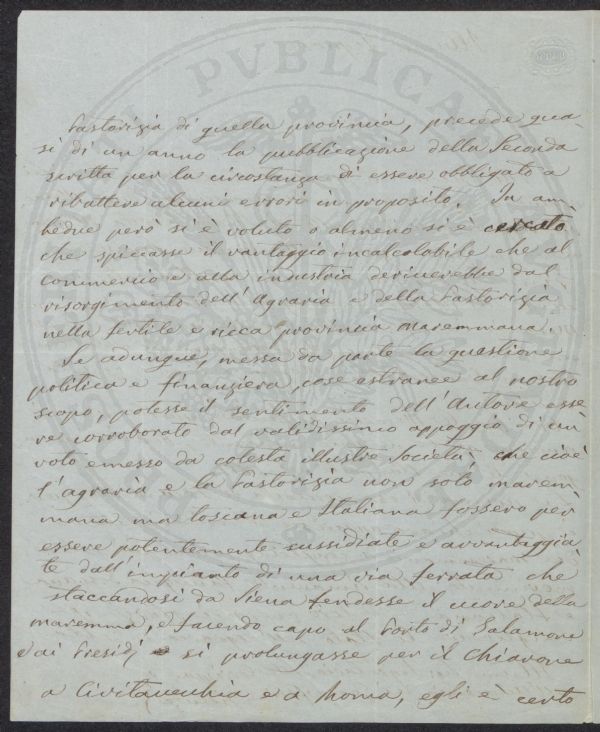 Pastorizia di quella provincia, precede qua-
si di un anno la pubblicazione della Seconda
scritta per la circostanza di essere obbligato a
ribattere alcuni errori in proposito. In am-
bedue però si è voluto o almeno si è cercato
che spiccasse il vantaggio incalcolabile che al
Commercio e alla industria deriverebbe dal
risorgimento dell'Agraria e della Pastorizia
nella fertile e ricca provincia Maremmana.
Se adunque, messa da parte la questione
politica e finanziera, cose estranee al nostro
scopo, potesse il sentimento dell'Autore esse-
re corroborato dal validissimo appoggio di un
voto emesso da cotesta illustre Società, che cioè
l'agraria e la Pastorizia non solo marem-
mana ma toscana e Italiana fossero per
essere potentemente sussidiate e avvantaggia-
te dall'impianto di una via ferrata che
staccandosi da Siena fendesse il cuore della
maremma, e facendo capo al Porto di Talamone
e ai Presidj si prolungasse per il Chiarone
a Civitavecchia e a Roma, egli è certo